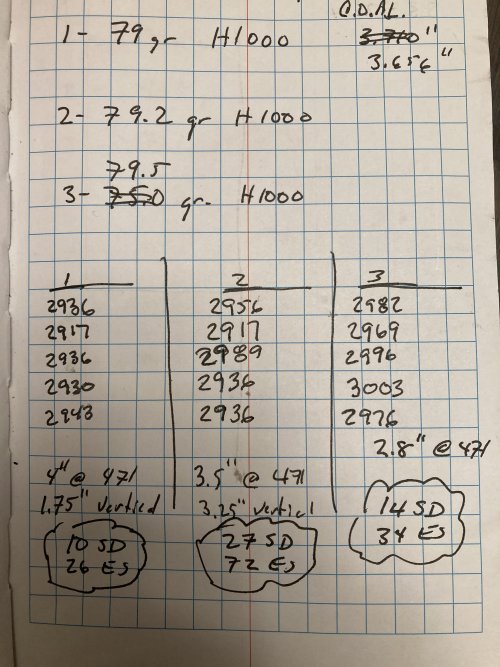 C.O.A.L.
1- 79 gr H1000 3.710"
3.656"
2- 79.2 gr H1000
79.5
3- 75.0 gr. H1000
1 2 3
2936 2956 2982
2917 2917 2969
2936 2989 2996
2930 2936 3003
2943 2936 2976
2.8" @ 471
4" @ 471 3.5" @ 471
1.75" vertical 3.25" vertical 14 SD
10 SD 27 SD 34 ES
26 ES 72 ES